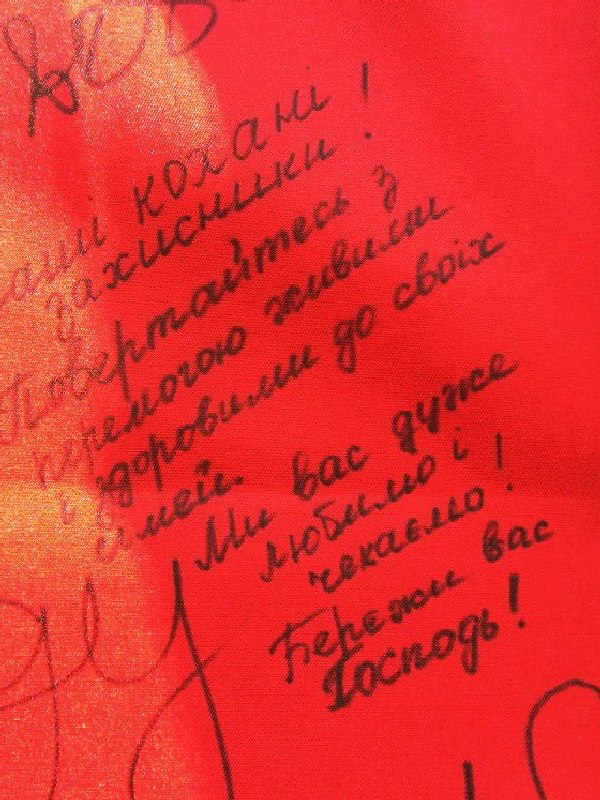 наші кохані!
захисники!
Повертайтесь з
перемогою живими
і здоровими до своїх
сімей.
Ми вас дуже
любимо і
чекаємо!
Бережи вас
Господь!